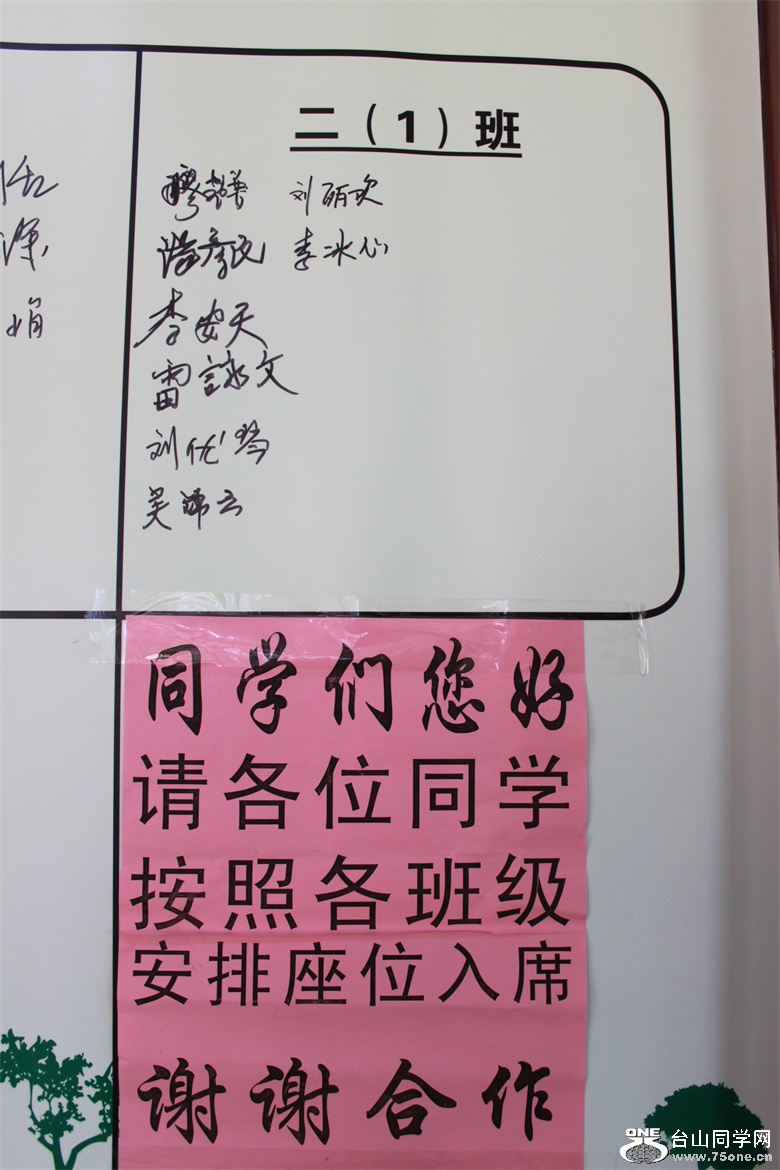 二（1）班
刘丽欢
李冰心
李安天
雷詠文
刘优琴
吴
云
娟
同学们您好
请各位同学
按照各班级
安排座位入席
谢谢合作
ONE
台山同学网
www.75one.cn